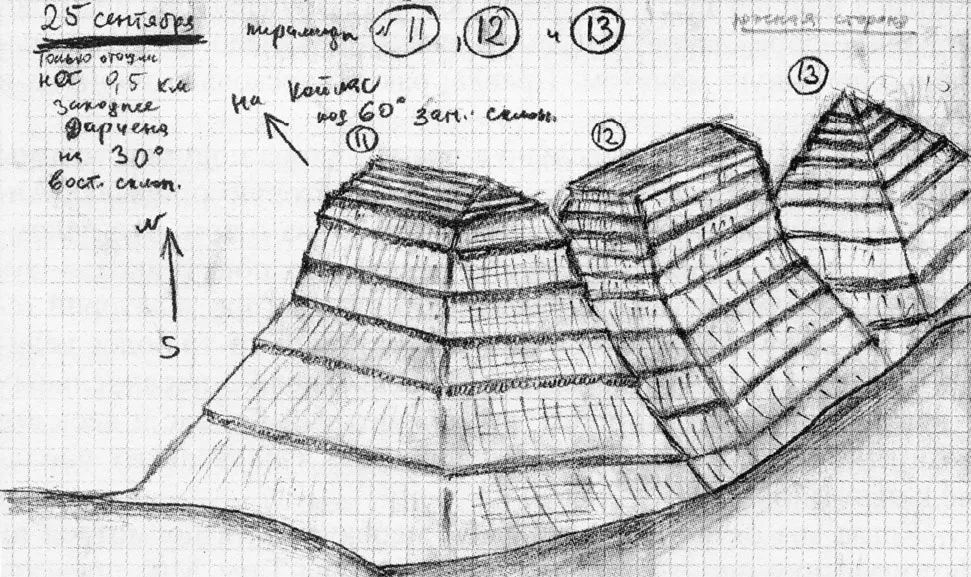 25 сентября
пирамиды №11, 12 и 13
южная сторона
Только отошли
на 0,5 км
западнее
Дарчена
на 30°
вост. склон.
на Кайлас
под 60° зап. склон.
11
12
13
N
S